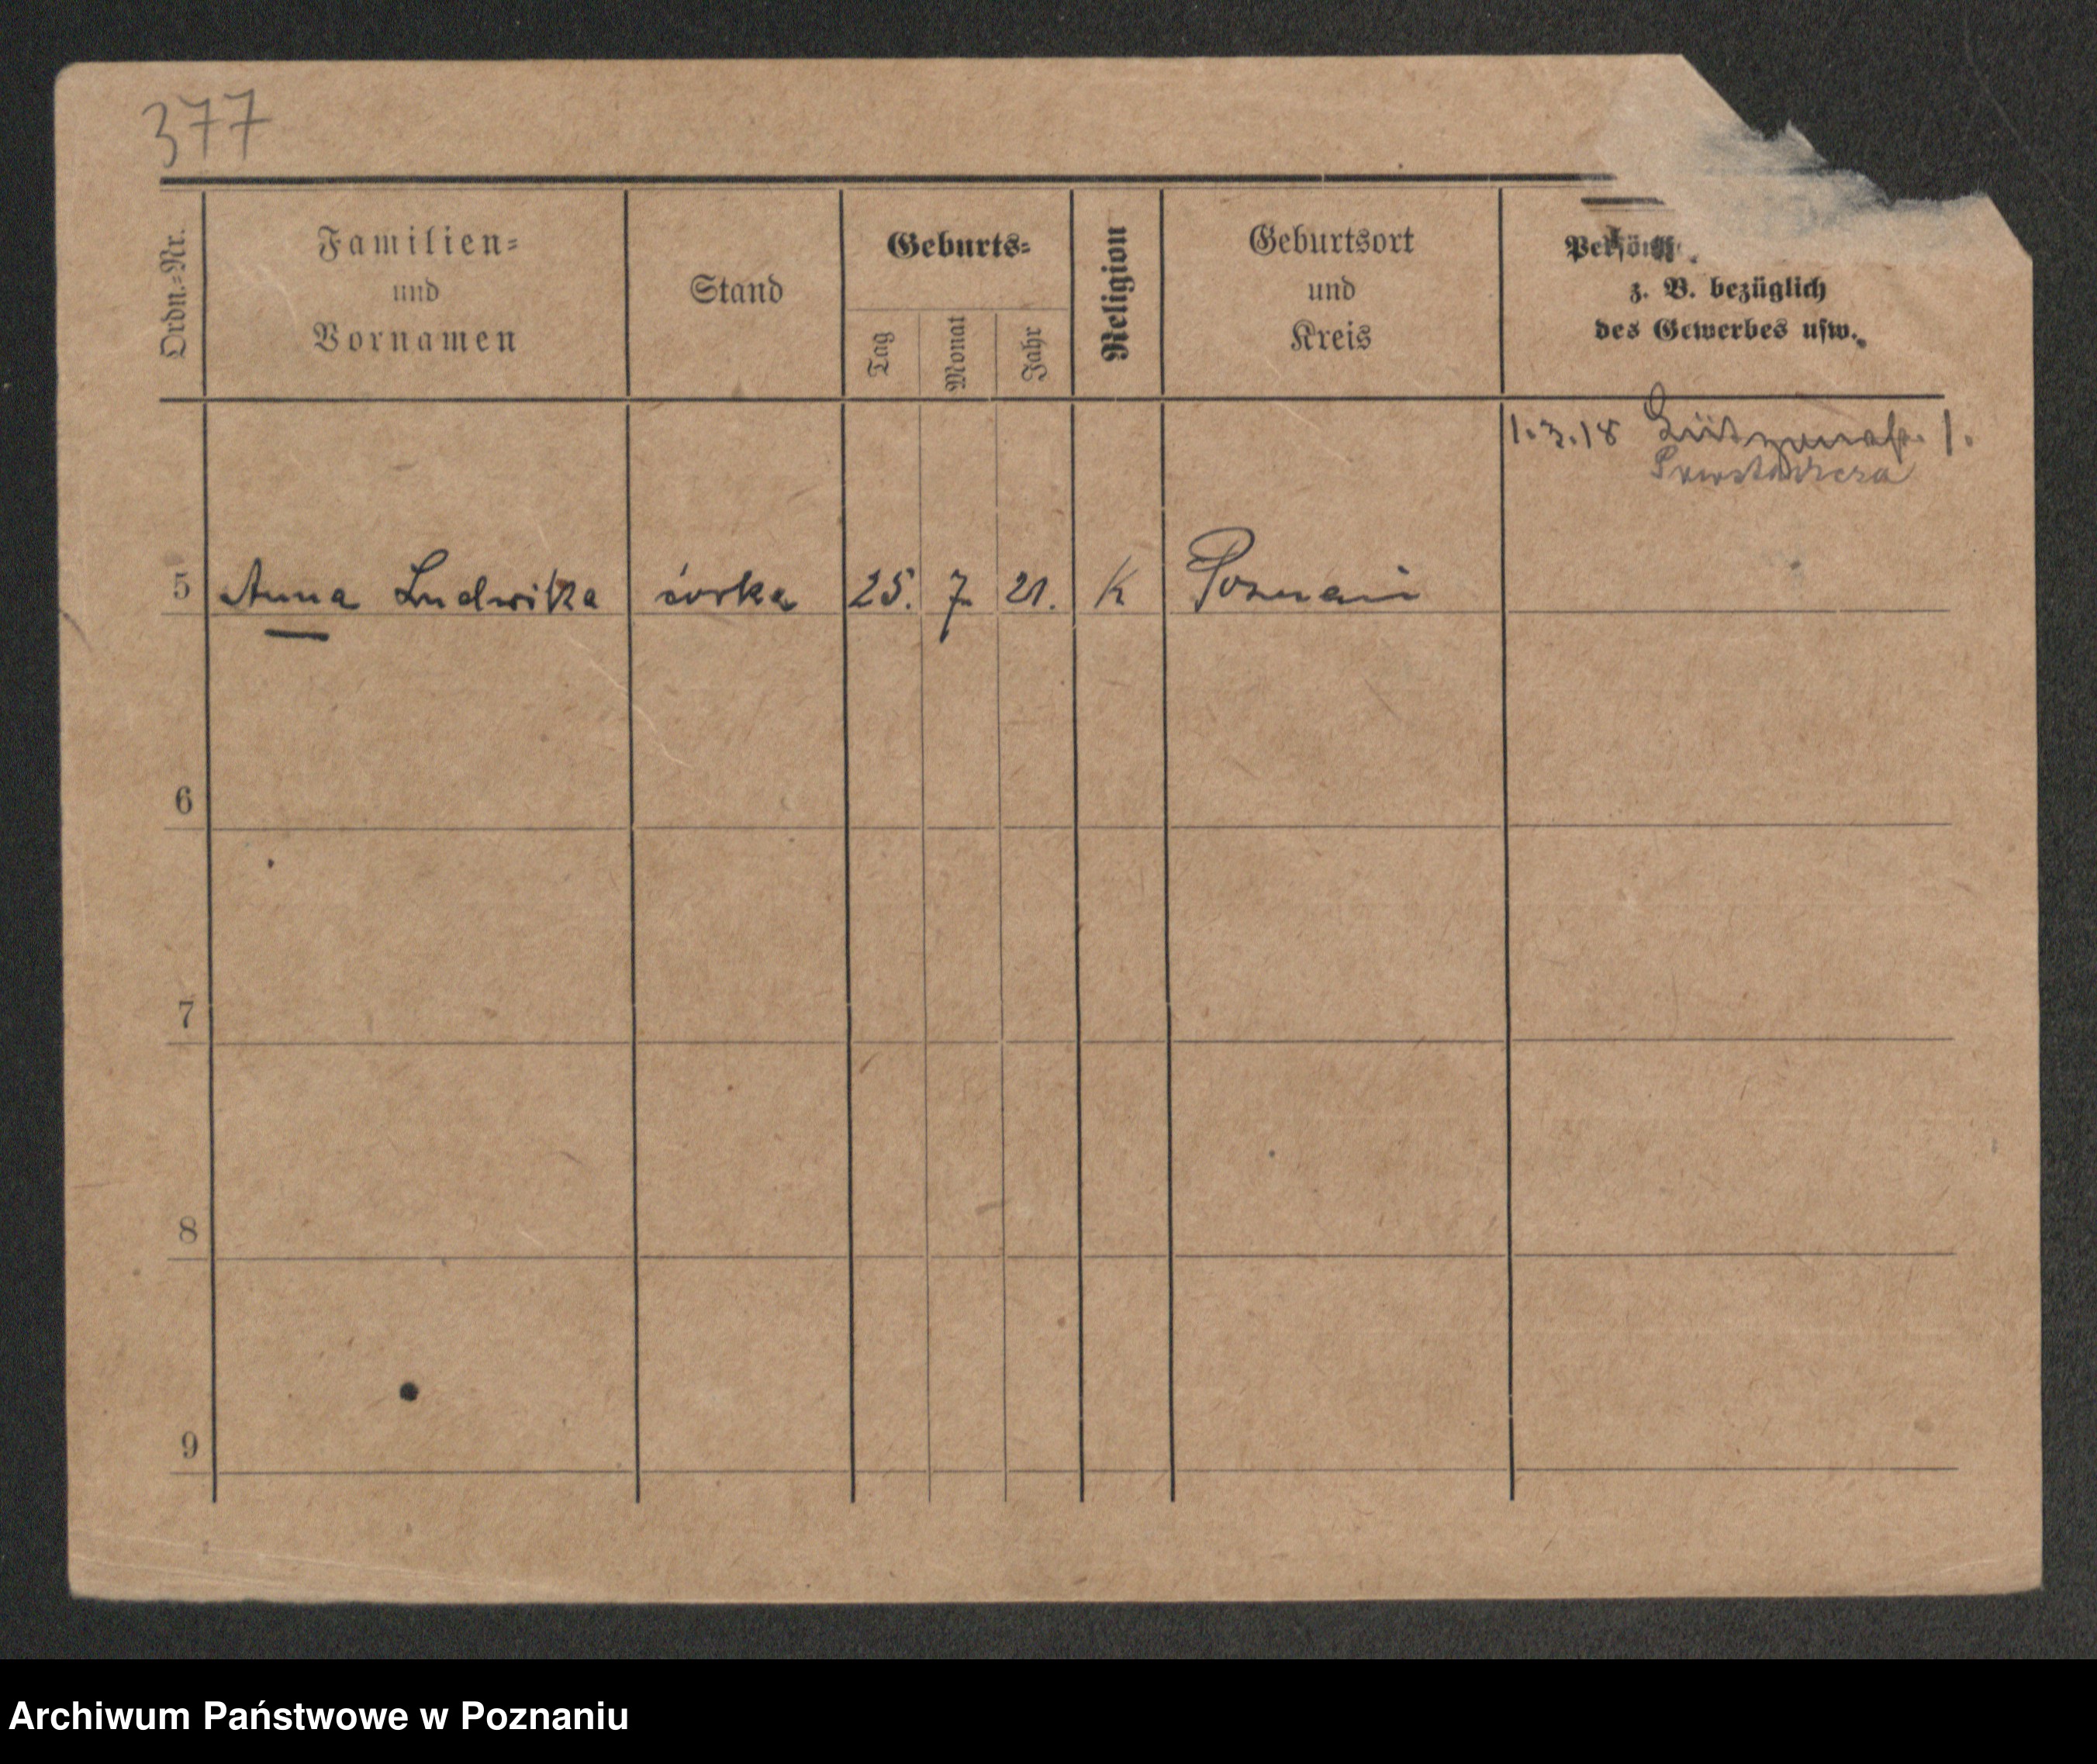 377
Ordn.-Nr.
Familien-
und
Vornamen
Stand
Geburts-
Tag
Monat
Jahr
Religion
Geburtsort
und
Kreis
z. B. bezüglich
des Gewerbes usw.
1.3.18 1.
5 Anna Ludwika córka 25. 7. 21. K Poznań
6
7
8
9
Archiwum Państwowe w Poznaniu